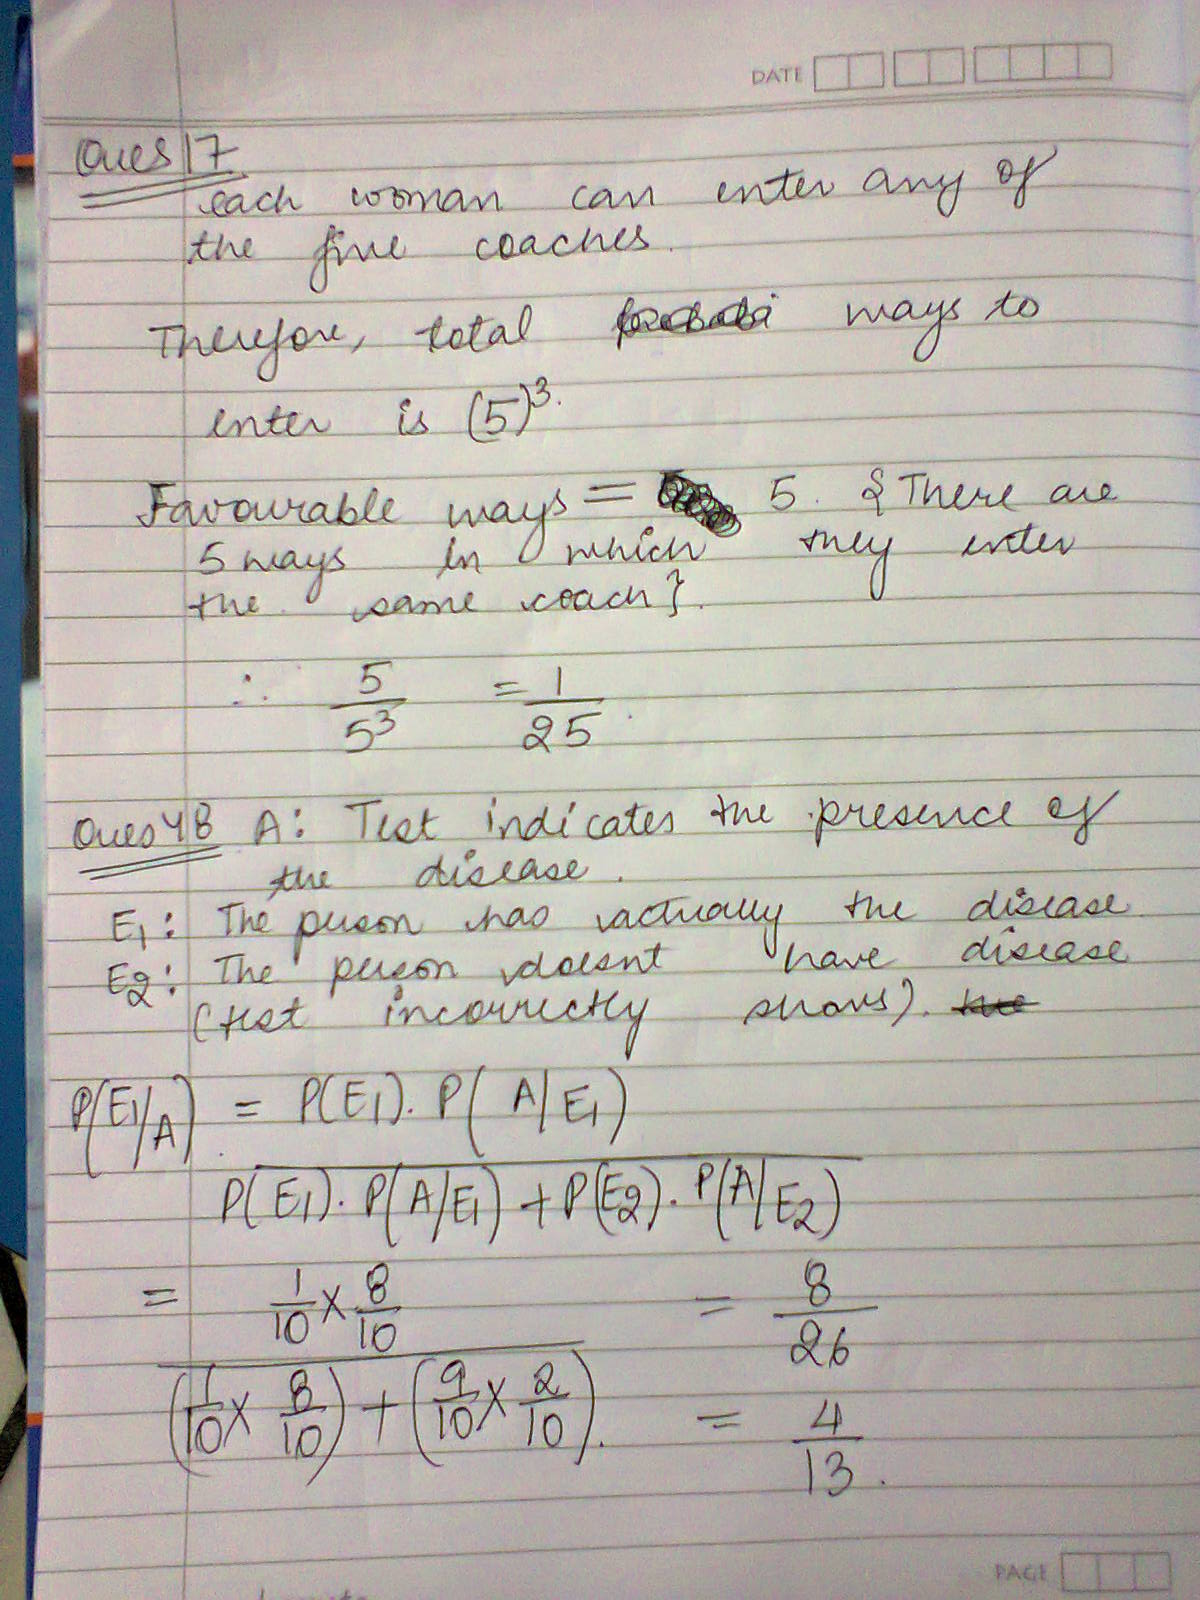 DATE
Ques 17
each woman can enter any of
the five coaches.
Therefore, total ways to
enter is (5)³.
Favourable ways = 5. {There are
5 ways in which they enter
the same coach}.
∴ 5/5³ = 1/25.
Ques 48 A: Test indicates the presence of
the disease.
E₁: The person has actually the disease
E₂: The person doesnt have disease
(test incorrectly shows).
P(E₁/A) = P(E₁). P(A/E₁)
P(E₁). P(A/E₁) + P(E₂). P(A/E₂)
= 1/10 × 8/10 = 8/26
(1/10 × 8/10) + (9/10 × 2/10). = 4/13.
PAGE